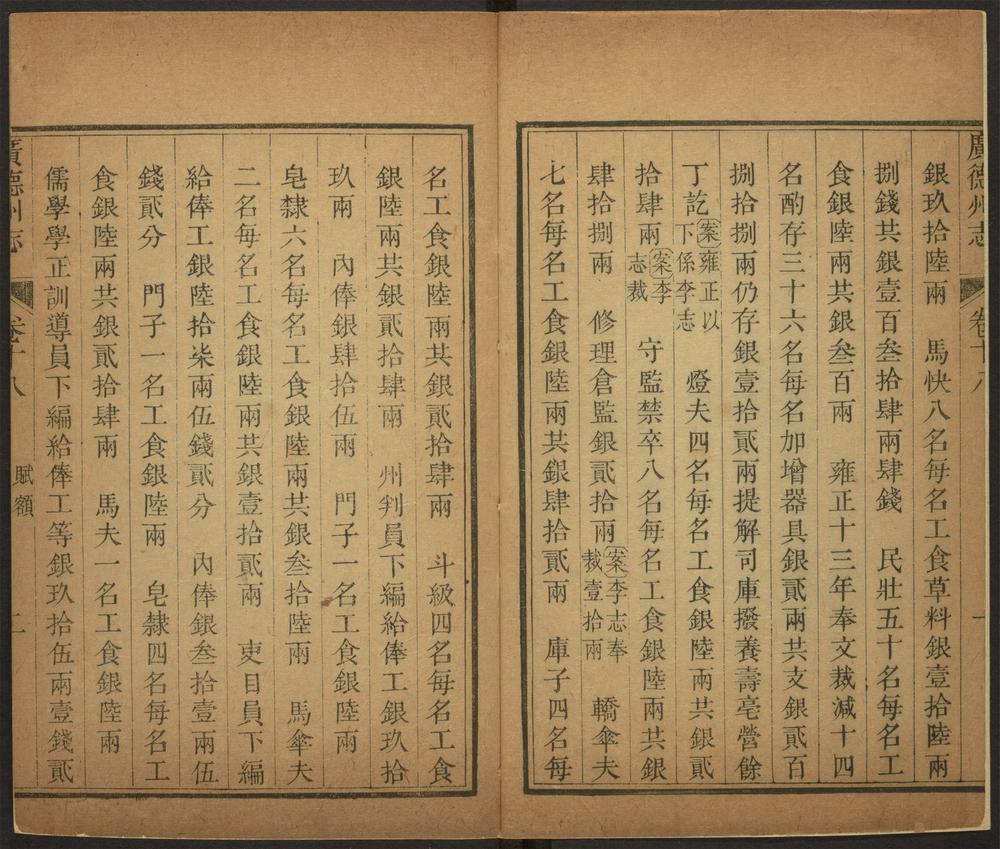 廣德州志 卷十八
銀玖拾陸兩 馬快八名每名工食草料銀壹拾陸兩
捌錢共銀壹百叁拾肆兩肆錢 民壯五十名每名工
食銀陸兩共銀叁百兩 雍正十三年奉文裁減十四
名酌存三十六名每名加增器具銀貳兩共支銀貳百
捌拾捌兩仍存銀壹拾貳兩提解司庫撥養壽亳營餘
丁訖案雍正以下係李志 燈夫四名每名工食銀陸兩共銀貳
拾肆兩案李志裁 守監禁卒八名每名工食銀陸兩共銀
肆拾捌兩 修理倉監銀貳拾兩案李志奉裁壹拾兩 轎傘夫
七名每名工食銀陸兩共銀肆拾貳兩 庫子四名每
名工食銀陸兩共銀貳拾肆兩 斗級四名每名工食
銀陸兩共銀貳拾肆兩 州判員下編給俸工銀玖拾
玖兩 內俸銀肆拾伍兩 門子一名工食銀陸兩
皂隸六名每名工食銀陸兩共銀叁拾陸兩 馬傘夫
二名每名工食銀陸兩共銀壹拾貳兩 吏目員下編
給俸工銀陸拾柒兩伍錢貳分 內俸銀叁拾壹兩伍
錢貳分 門子一名工食銀陸兩 皂隸四名每名工
食銀陸兩共銀貳拾肆兩 馬夫一名工食銀陸兩
儒學學正訓導員下編給俸工等銀玖拾伍兩壹錢貳
廣德州志 卷十八 賦額 二